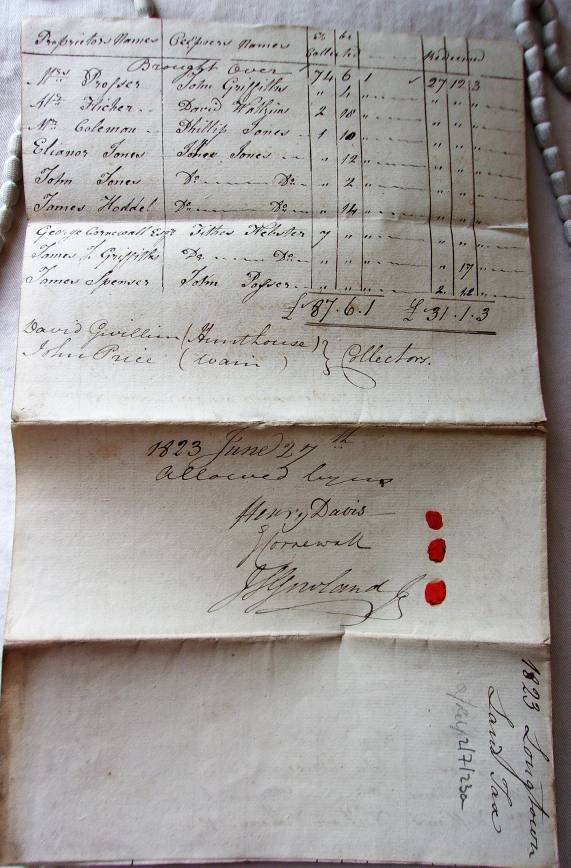 Proprietors Names Occupiers Names Collected Redeemed
Brought Over 74 6 1 27 12 3
Mrs Prosser John Griffiths " 4 " " " "
David Watkins 2 18 " " " "
Mr Coleman Phillip Jones 1 10 " " " "
Elianor Jones Jones " 12 " " " "
John Jones Do Do " 2 " " " "
James Hoddel Do Do " 14 " " " "
George Cornewall Esqr Tithes Webster 7 " " " " "
James J Griffiths Do Do " " " " 17 "
James Spenser John " " " 2 12 "
£87.6.1 £31.1.3
David Gwillim (Hunthouse)
John Price (Wain) } Collectors.
1823 June 27th
Allowed by us
Henry Davis
Cornewall
1823 Longtown
Land Tax